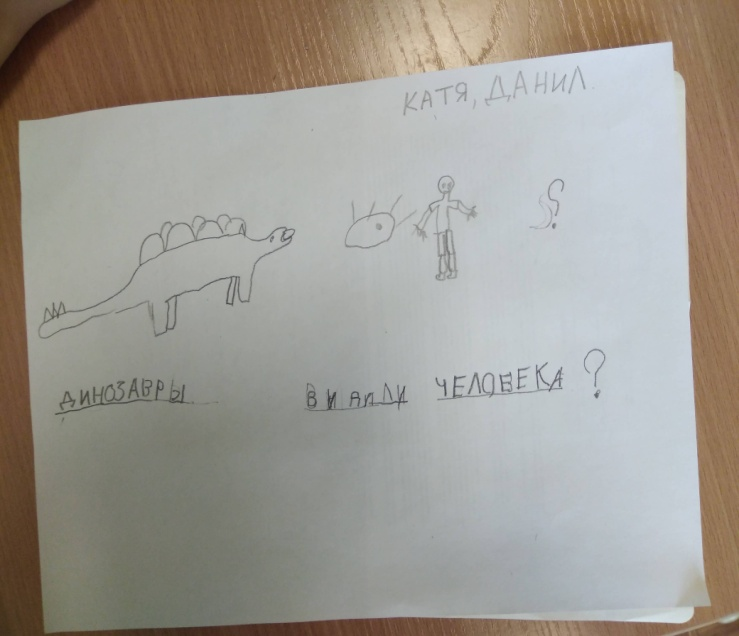 КАТЯ, ДАНИЛ
?
ДИНОЗАВРЫ ВИДИЛИ ЧЕЛОВЕКА?